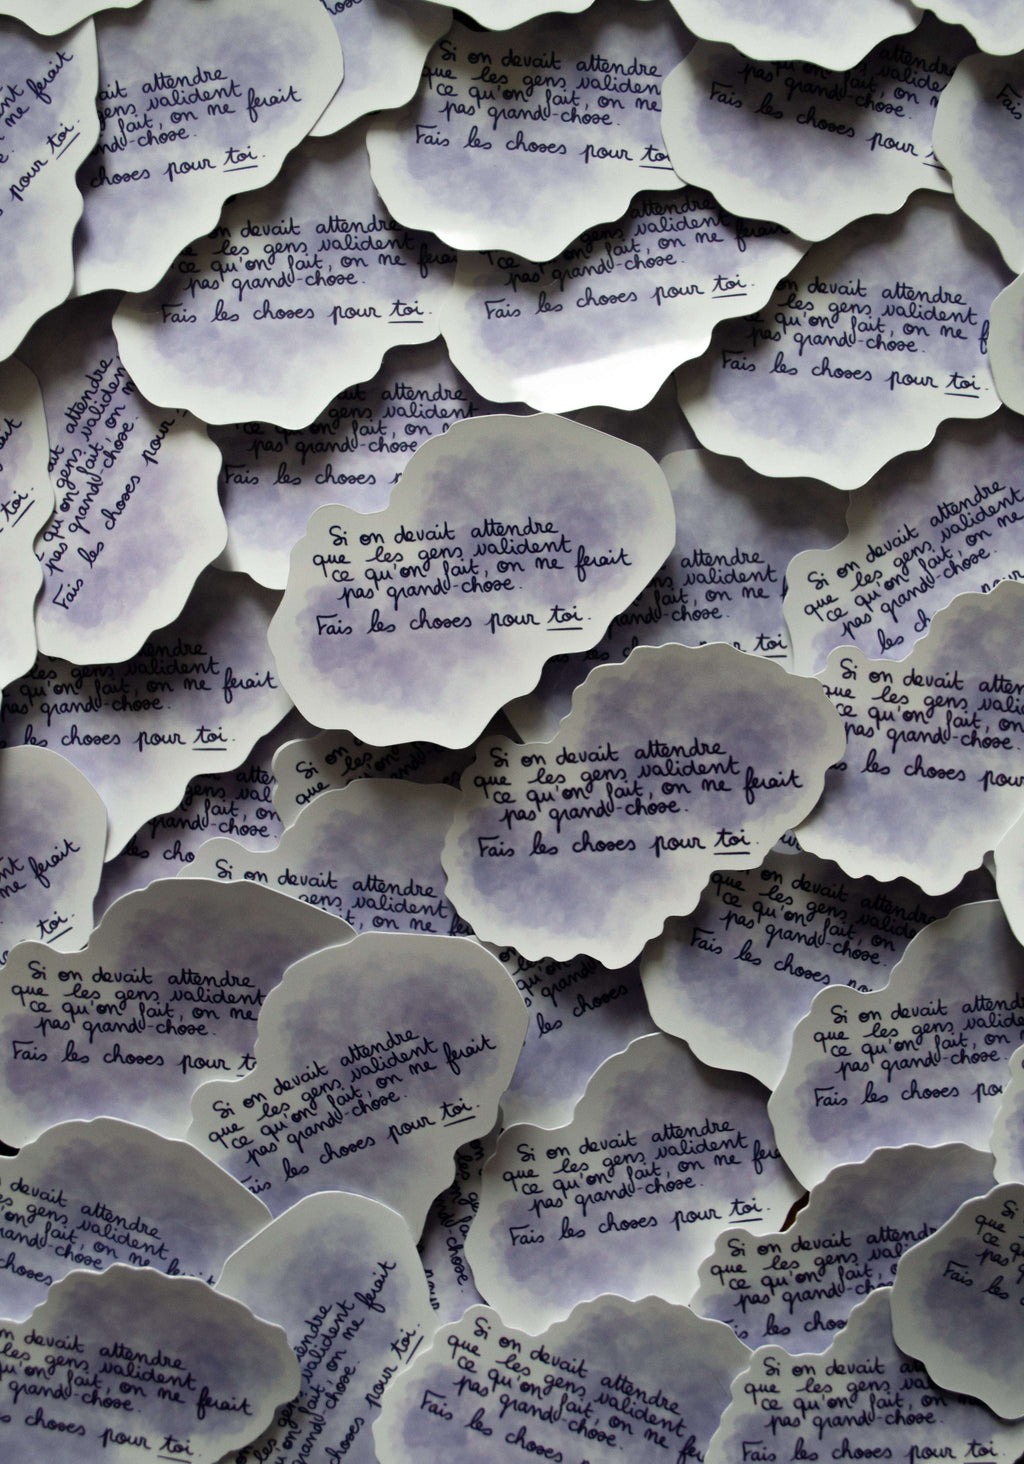 Si on devait attendre
que les gens valident
ce qu'on fait, on ne ferait
pas grand-chose.
Fais les choses pour toi.